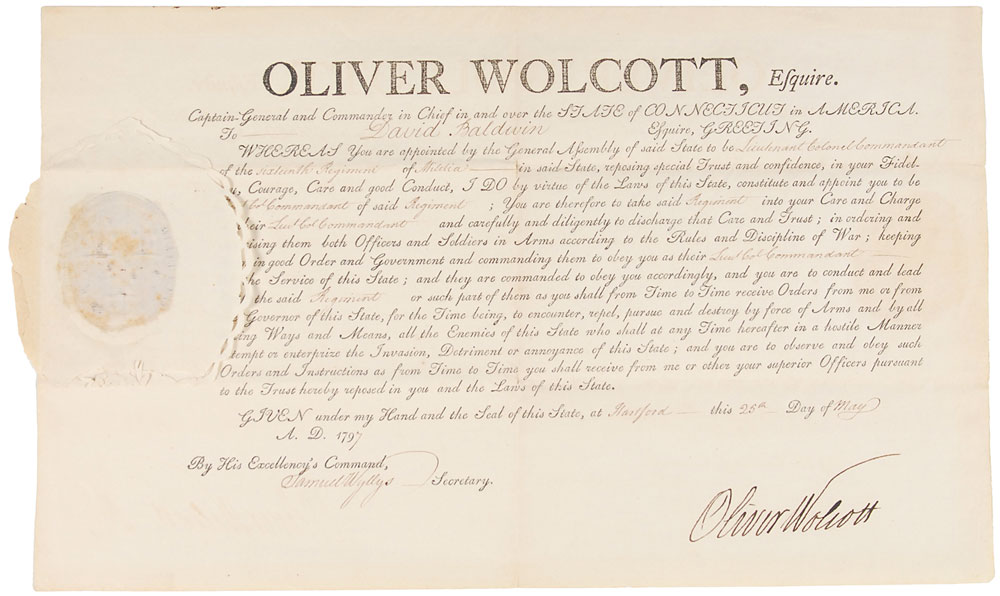 OLIVER WOLCOTT, Eſquire.
Captain-General and Commander in Chief in and over the STATE of CONNECTICUT in AMERICA.
To David Baldwin Eſquire, GREETING.
WHEREAS You are appointed by the General Aſſembly of ſaid State to be Lieutenant Colonel Commandant
of the Sixteenth Regiment of Militia in ſaid State, repoſing ſpecial Truſt and confidence, in your Fidel-
Courage, Care and good Conduct, I DO by virtue of the Laws of this State, conſtitute and appoint you to be
Col Commandant of ſaid Regiment ; You are therefore to take ſaid Regiment into your Care and Charge
their Lieut Col Commandant and carefully and diligently to diſcharge that Care and Truſt ; in ordering and
iſing them both Officers and Soldiers in Arms according to the Rules and Diſcipline of War ; keeping
in good Order and Government and commanding them to obey you as their Lieut Col Commandant
he Service of this State ; and they are commanded to obey you accordingly, and you are to conduct and lead
the ſaid Regiment or ſuch part of them as you ſhall from Time to Time receive Orders from me or from
Governor of this State, for the Time being, to encounter, repel, purſue and deſtroy by force of Arms and by all
ing Ways and Means, all the Enemies of this State who ſhall at any Time hereafter in a hoſtile Manner
tempt or enterprize the Invaſion, Detriment or annoyance of this State ; and you are to obſerve and obey ſuch
Orders and Inſtructions as from Time to Time you ſhall receive from me or other your ſuperior Officers purſuant
to the Truſt hereby repoſed in you and the Laws of this State.
GIVEN under my Hand and the Seal of this State, at Hartford this 25th Day of May
A. D. 1797
By His Excellency's Command,
Samuel Wyllys Secretary.
Oliver Wolcott